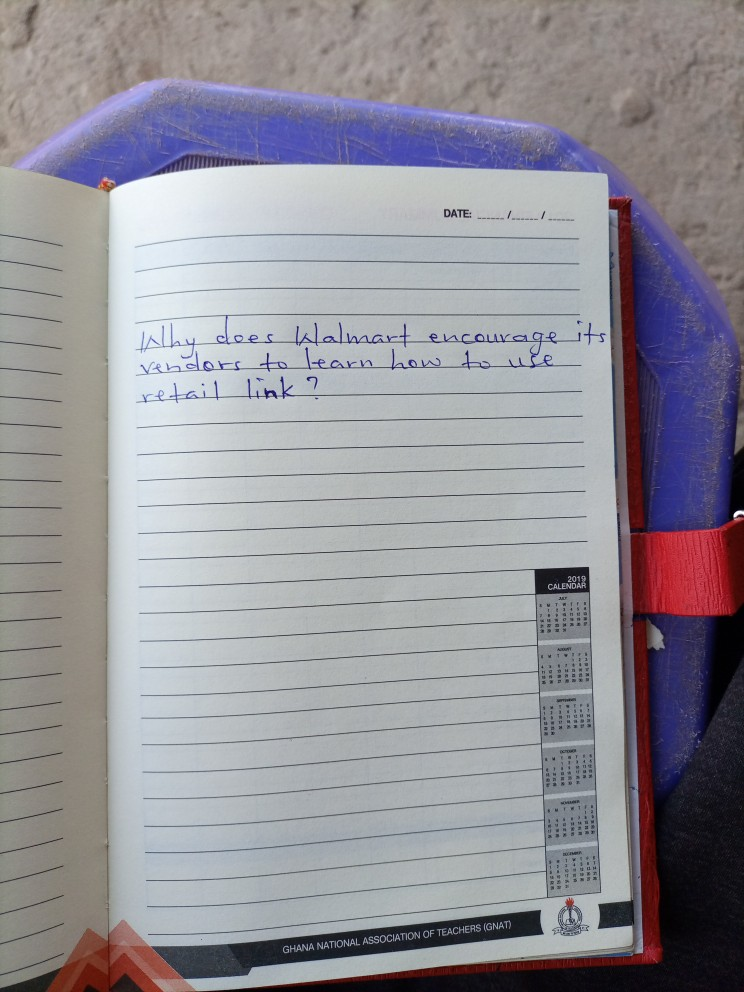 DATE: ______ /______ / ______
Why does Walmart encourage its
vendors to learn how to use
retail link?
2019
CALENDAR
JULY
AUGUST
SEPTEMBER
OCTOBER
NOVEMBER
DECEMBER
GHANA NATIONAL ASSOCIATION OF TEACHERS (GNAT)